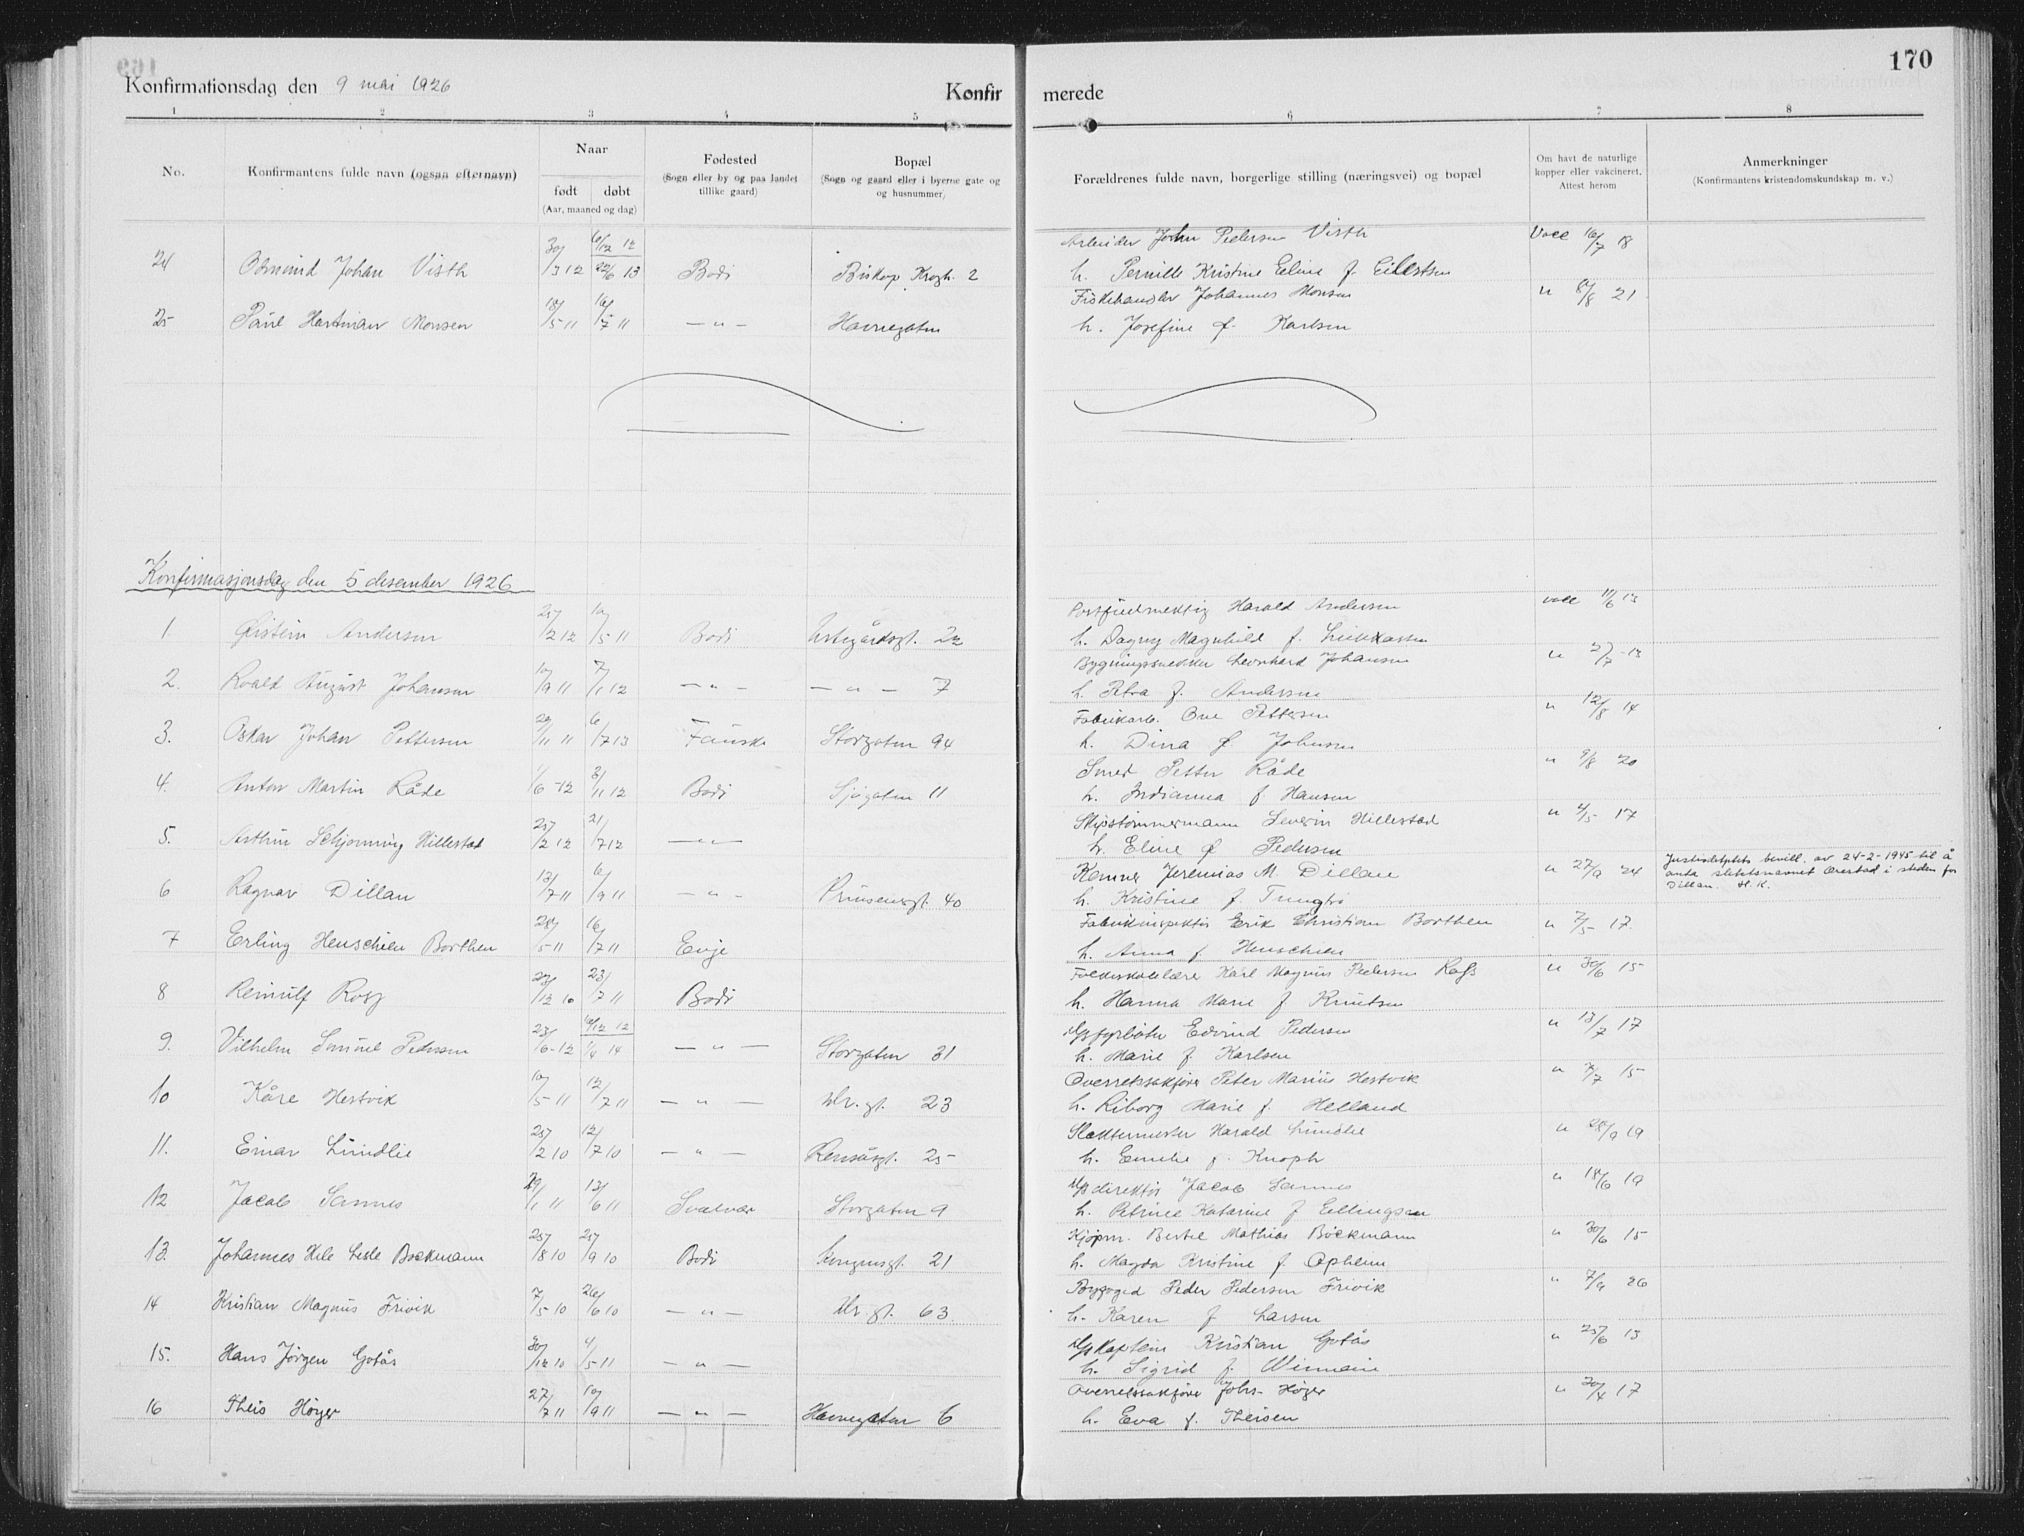 170
Konfirmationsdag den 9 mai 1926
Konfirmerede
1 2 3 4 5 6 7 8
No.
Konfirmantens fulde navn (ogsaa efternavn)
Naar
født døbt
(Aar, maaned og dag)
Fødested
(Sogn eller by og paa landet
tillike gaard)
Bopæl
(Sogn og gaard eller i byerne gate og
og husnummer)
Forældrenes fulde navn, borgerlige stilling (næringsvei) og bopæl
Om havt de naturlige
kopper eller vakcineret.
Attest herom
Anmerkninger
(Konfirmantens kristendomskundskap m. v.)
Arbeider John Pedersen Visth Vacc 16/7 18
24 Osmund Johan Visth 30/3 12 6/12 12 22/6 13 Bodø Biskop Kroghs. 2 h. Pernille Kristine Eline f. Eilertsen
Fiskehandler Johannes Monsen " 8/8 21
25 Paul Hartman Monsen 18/5 11 16/7 11 — " — Havnegaten h. Josefine f. Karlsen
Konfirmasjonsdag den 5 desember 1926
Postfuldmektig Harald Andersen vacc 11/6 13
1. Øistein Andersen 25/2 12 10/5 11 Bodø 22 h. Dagny Magnhild f.
Bygningssnekker Leonhard Johansen " 2/7 - 13
2. Roald August Johansen 10/9 11 7/1 12 — " — — " — 7 h. Petra f. Andersen
Fabrikarb. Ove Pettersen " 12/8 14
3. Oskar Johan Pettersen 29/11 11 6/7 13 Fauske Storgaten 94 h. Dina f. Johnsen
Smed Petter Råde " 9/8 20
4. Anton Martin Råde 1/6 - 12 3/11 12 Bodø Sjøgaten 11 h. Indianna f. Hansen
Skipstømmermann Severin Hillestad " 4/5 17
5. Arthur Schjønning Hillestad 25/2 12 21/7 12 — " — h. Eline f. Pedersen
Kemner Jeremias M. Dillan " 27/9 24 Justisdeptets bevill. av 24-2-1945 til å
anta slektsnavnet i steden for
Dillan. H. K.
6 Ragnar Dillan 13/7 11 6/9 11 — " — Prinsensgt. 40 h. Kristine f.
Fabrikinspektør Erik Christian Borthen " 7/5 17.
7 Erling Henschien Borthen 28/5 11 16/7 11 Evje h. Anna f Henschien
Folkeskolelærer Karl Magnus Pedersen " 30/6 15
8 Reinulf 23/12 10 23/7 11 Bodø h. Hanna Marie f Knutsen
Edvind Pedersen " 13/7 17
9. Vilhelm Samuel Pedersen 23/6 - 12 12 1/4 14 — " — Storgaten 31 h. Marie f. Karlsen
Overretssakfører Peter Marius Hestvik " 7 15
10 Kåre Hestvik 10/5 11 12/7 11 — " — Dr. gt. 23 h. Riborg Marie f. Helland
Slaktermester Harald Lundlie " 28/9 19
11. Einar Lundlie 25/2 10 12/7 10 — " — Rensåsgt. 25 h. Emelie f. Knoph
direktør Jacob Sannes " 18/6 19
12 Jacob Sannes 29/1 11 13/6 11 Svolvær Storgaten 9 h. Petrine Katarine f Ellingsen
Kjøpm. Bertel Mathias Böckmann " 30/6 15
13. Johannes Böckmann 25/8 10 25/9 10 Bodø Kongensgt. 21 h. Magda Kristine f. Opheim
Byfoged Peder Pedersen Frivik " 7/9 26
14 Kristian Magnus Frivik 7/5 10 26/6 10 — " — Dr. gt. 63. h. Karen f Larsen
kaptein Kristian Gotås " 25/6 13
15. Hans Jørgen Gotås 30/12 10 4/5 11 — " — h. Sigrid f.
Overretssakfører Johs. Høyer " 20/4 17
16 Theis Høyer 27/7 11 10/9 11 — " — Havnegaten 6 h. Eva f. Theisen